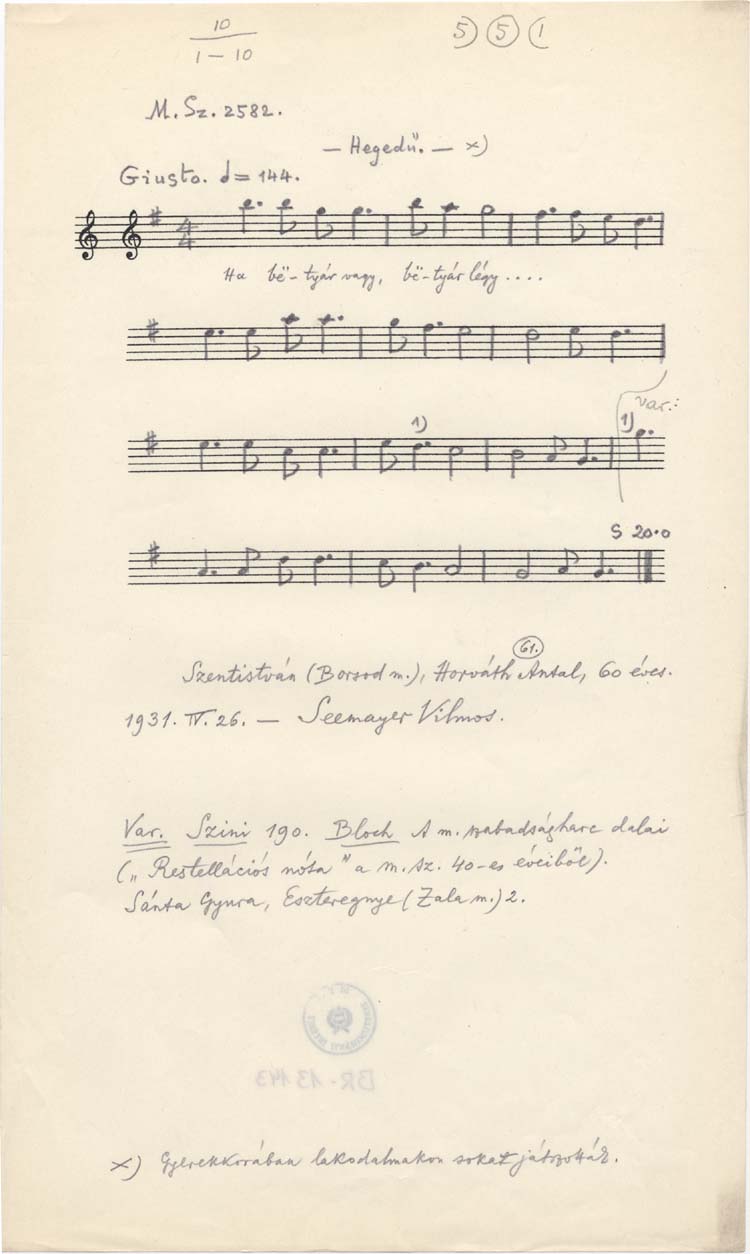 10
1 – 10
5) (5) (1
M. Sz. 2582.
– Hegedű. – x)
Giusto. d = 144.
4
4
Ha bë-tyár vagy, bë-tyár légy ....
var.:
1) 1)
S 20·0
61.
Szentistván (Borsod m.), Horváth Antal, 60 éves.
1931. IV. 26. – Seemayer Vilmos.
Var. Szini 190. Bloch A m. szabadságharc dalai
("Restellációs nóta" a m. sz. 40-es éveiből).
Sánta Gyura, Eszteregnye (Zala m.) 2.
BR-13143
x) Gyerekkorában lakodalmakon sokat játszották.